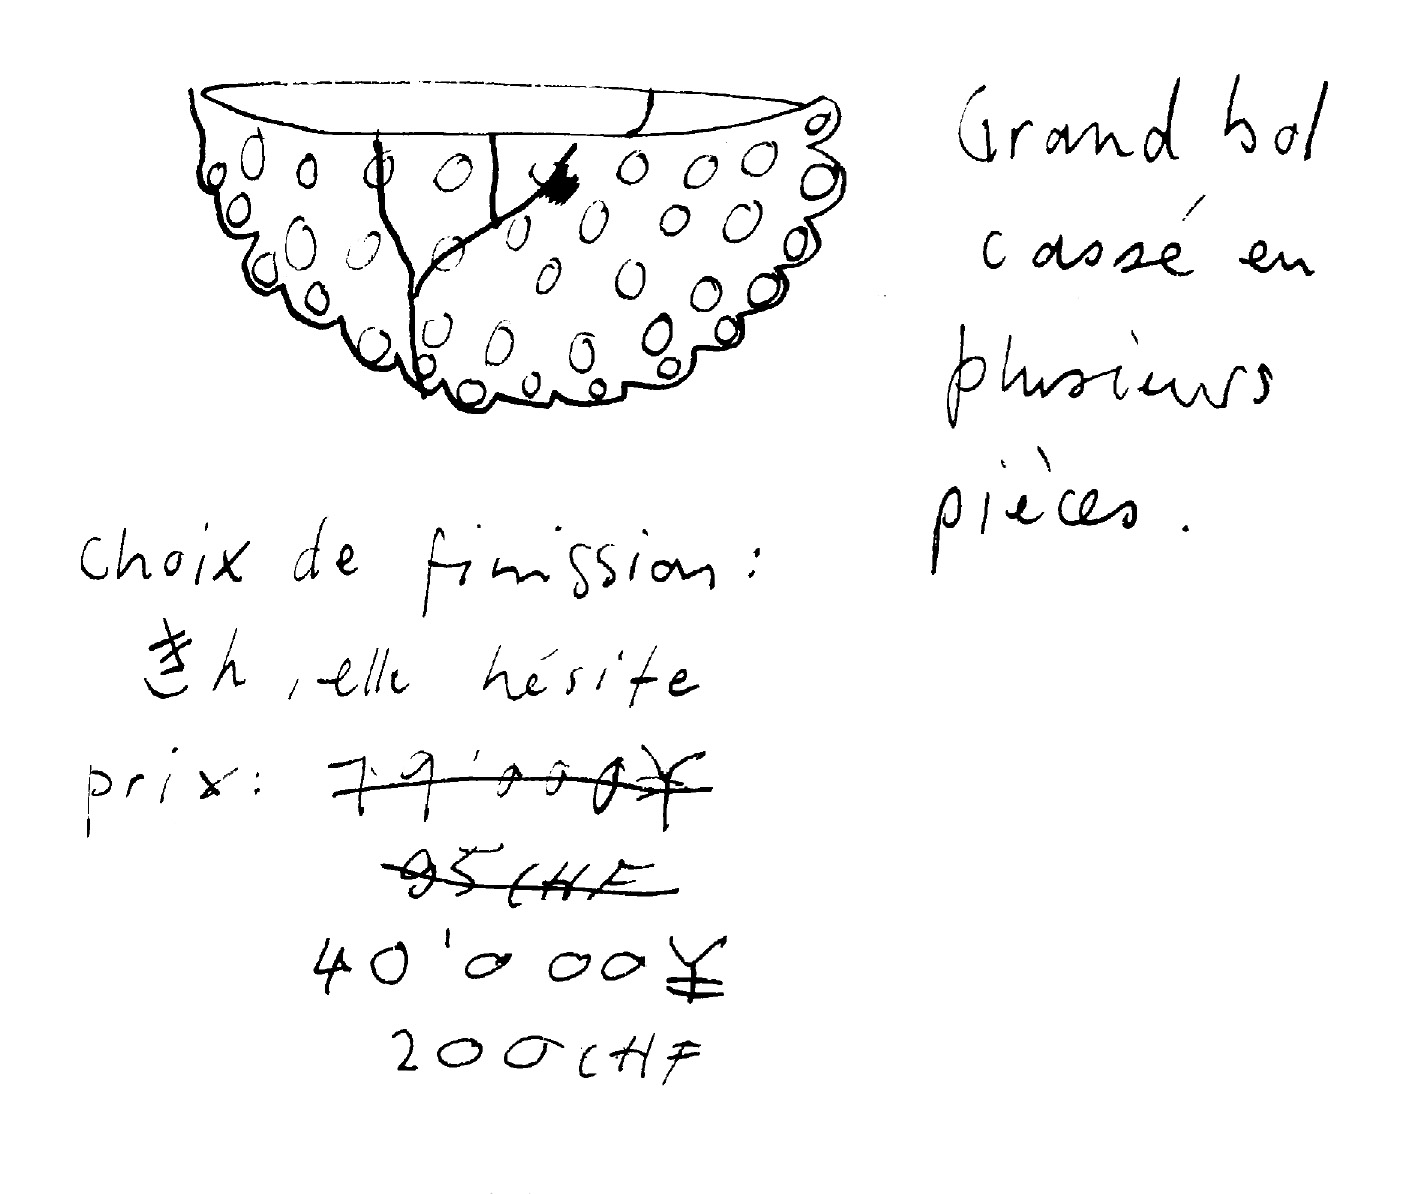 Grand bol
cassé en
plusieurs
pièces.
choix de finission :
, elle hésite
prix : 79'000¥
95 CHF
40'000¥
200 CHF